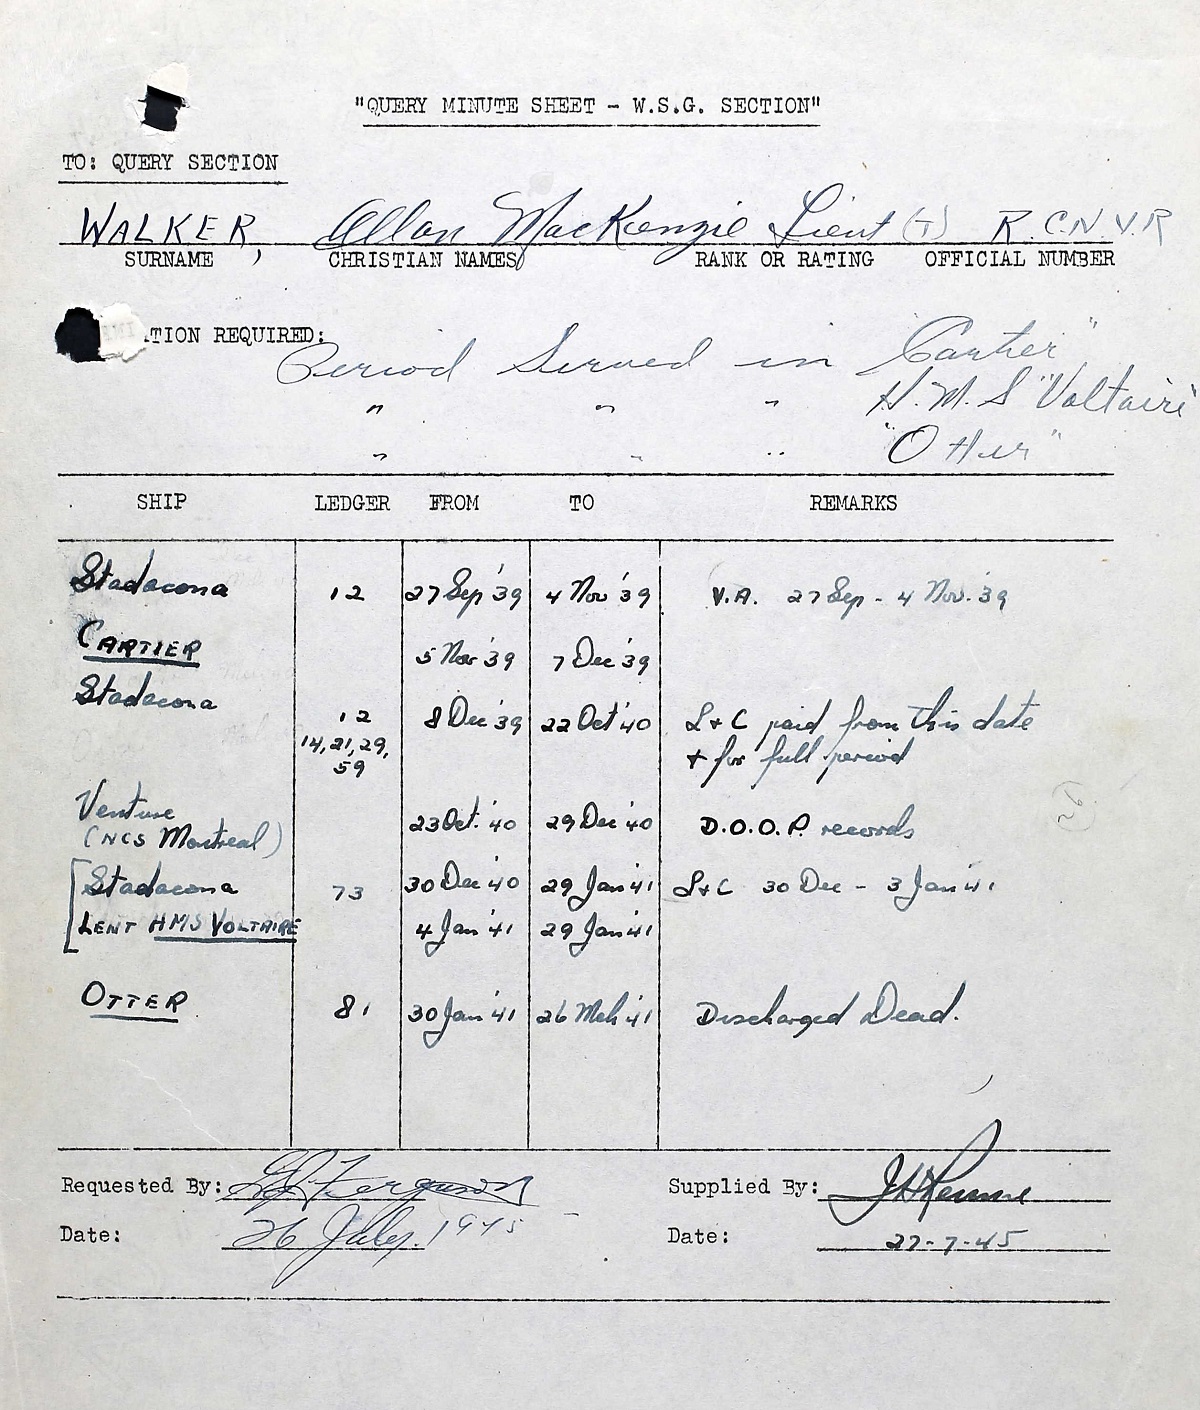 "QUERY MINUTE SHEET - W.S.G. SECTION"
TO: QUERY SECTION
WALKER, Allan MacKenzie Lieut (T) R.C.N.V.R
SURNAME CHRISTIAN NAMES RANK OR RATING OFFICIAL NUMBER
ATION REQUIRED:
Period Served in "Cartier"
" " " H.M.S "Voltaire"
" " " "Otter"
SHIP LEDGER FROM TO REMARKS
Stadacona 12 27 Sep '39 4 Nov '39 V.A. 27 Sep - 4 Nov. '39
CARTIER 5 Nov '39 7 Dec '39
Stadacona
12 8 Dec '39 22 Oct '40 L + C paid from this date
14, 21, 29, + for full period
59
Venture
(NCS Montreal) 23 Oct. '40 29 Dec '40 D.O.O.P. records
Stadacona 73 30 Dec '40 29 Jan '41 L+C 30 Dec - 3 Jan '41
LENT HMS VOLTAIRE 4 Jan '41 29 Jan '41
OTTER 81 30 Jan '41 26 Mch '41 Discharged Dead.
Requested By: Ferguson Supplied By:
Date: 26 July. 1945 Date: 27-7-45